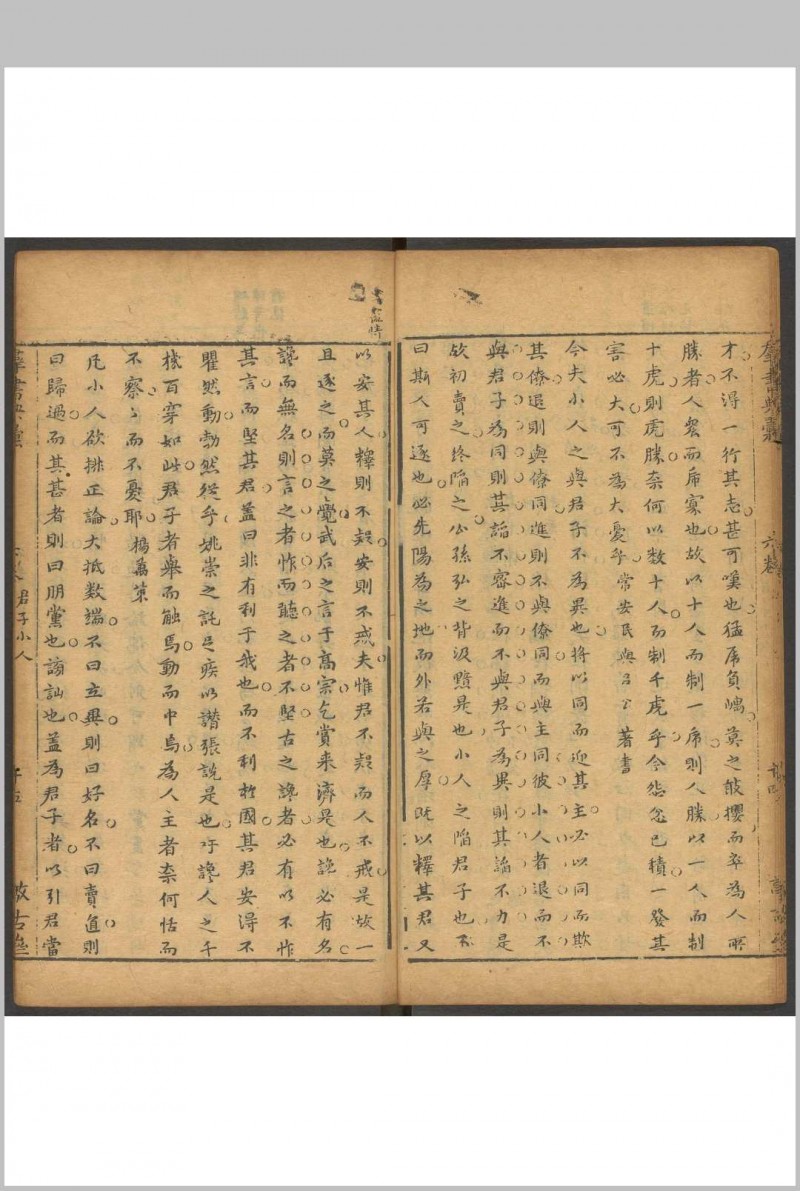 才不得一行其志甚可嘆也猛虎負嵎莫之敢攖而卒為人所
勝者人衆而虎寡也故以十人而制一虎則人勝以一人而制
十虎則虎勝奈何以数十人而制千虎乎今怨忿已積一發其
害必大可不為大憂乎常安民與呂公著書
今夫小人之與君子不為異也将以同而迎其主必以同而欺
其僚退則與僚同進則不與僚同而與主同彼小人者退而不
與君子為同則其謟不密進而不與君子為異則其謟不力是
故初賣之終陷之公孫弘之背汲黯是也小人之陷君子也不
曰斯人可逐也必先陽為之地而外若與之厚既以釋其君又
以安其人釋則不疑安則不戒夫惟君不疑而人不戒是故一
且逐之而莫之覺武后之言于高宗乞賞来濟是也讒必有名
讒而無名則言之者怍而聽之者不堅古之讒者必有以不怍
其言而堅其君盖曰非有利于我也而不利於國其君安得不
瞿然動勃然從乎姚崇之託足疾以譖張説是也吁讒人之千
機百穽如此君子者舉而触焉動而中焉為人主者奈何恬而
不察〻而不憂耶楊萬策
凡小人欲排正論大抵数端不曰立異則曰好名不曰賣直則
曰歸過而其甚者則曰朋黨也謗訕也盖為君子者以引君當
君子小人
六卷